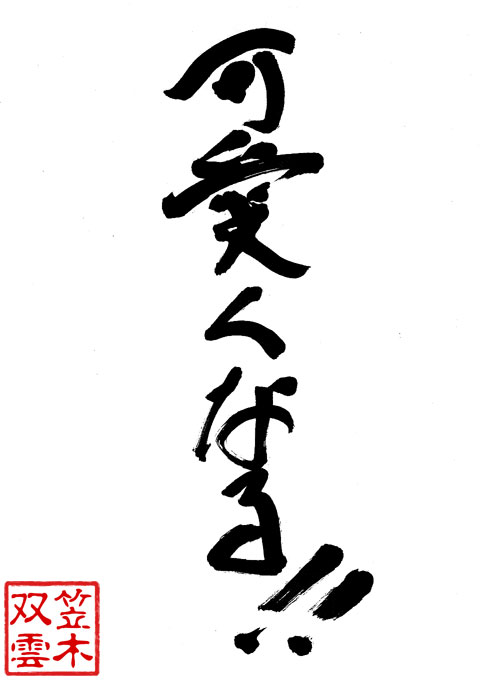 可愛くなる!!
笠木
双雲